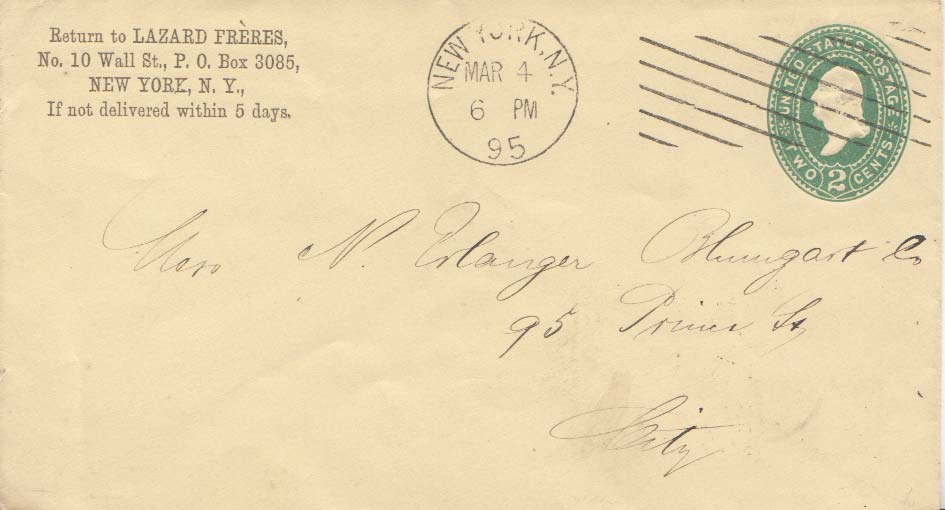 Return to LAZARD FRÈRES,
No. 10 Wall St., P. O. Box 3085,
NEW YORK, N. Y.,
If not delivered within 5 days.
NEW YORK, N.Y.
MAR 4
6 PM
95
UNITED STATES POSTAGE
TWO 2 CENTS
Messrs N. Erlanger Blumgart Co
95 Prince St
City